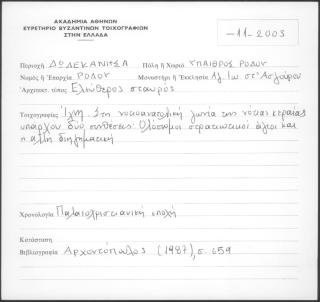 ΑΚΑΔΗΜΙΑ ΑΘΗΝΩΝ
ΕΥΡΕΤΗΡΙΟ ΒΥΖΑΝΤΙΝΩΝ ΤΟΙΧΟΓΡΑΦΙΩΝ
ΣΤΗΝ ΕΛΛΑΔΑ
-11-2003
Περιοχή ΔΩΔΕΚΑΝΗΣΑ Πόλη ή Χωριό ΥΠΑΙΘΡΟΣ ΡΟΔΟΥ
Νομός ή Επαρχία ΡΟΔΟΥ Μοναστήρι ή Εκκλησία Αγ. Ιω στ'Ασγούρου
Αρχιτεκτ. τύπος Ελεύθερος σταυρός
Τοιχογραφίες Ίχνη. Στη νοτιοανατολική γωνία της νότιας κεραίας
υπάρχουν δύο συνθέσεις: Ολόσωμοι στρατιωτικοί άγιοι και
η άλλη διηγηματική
Χρονολογία Παλαιοχριστιανική εποχή
Κατάσταση
Βιβλιογραφία Αρχοντόπουλος (1987), σ. 659